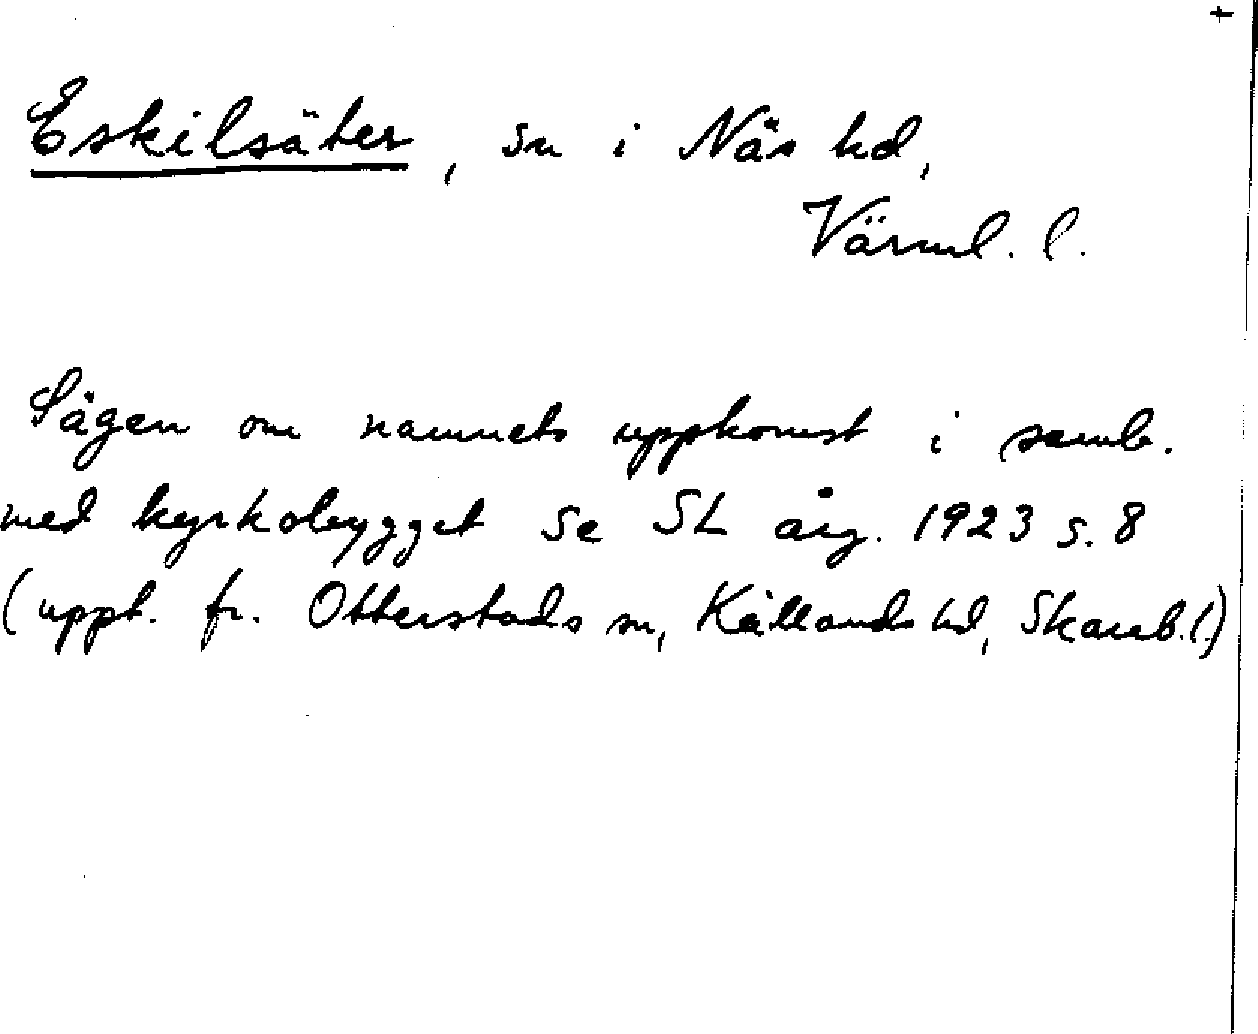 +
Eskilsäter, sn i Näs hd,
Värml. l.
Sägen om namnets uppkomst i samb.
med kyrkobygget se SL årg. 1923 s. 8
(uppt. fr. Otterstads sn, Kållands hd, Skarab. l.)